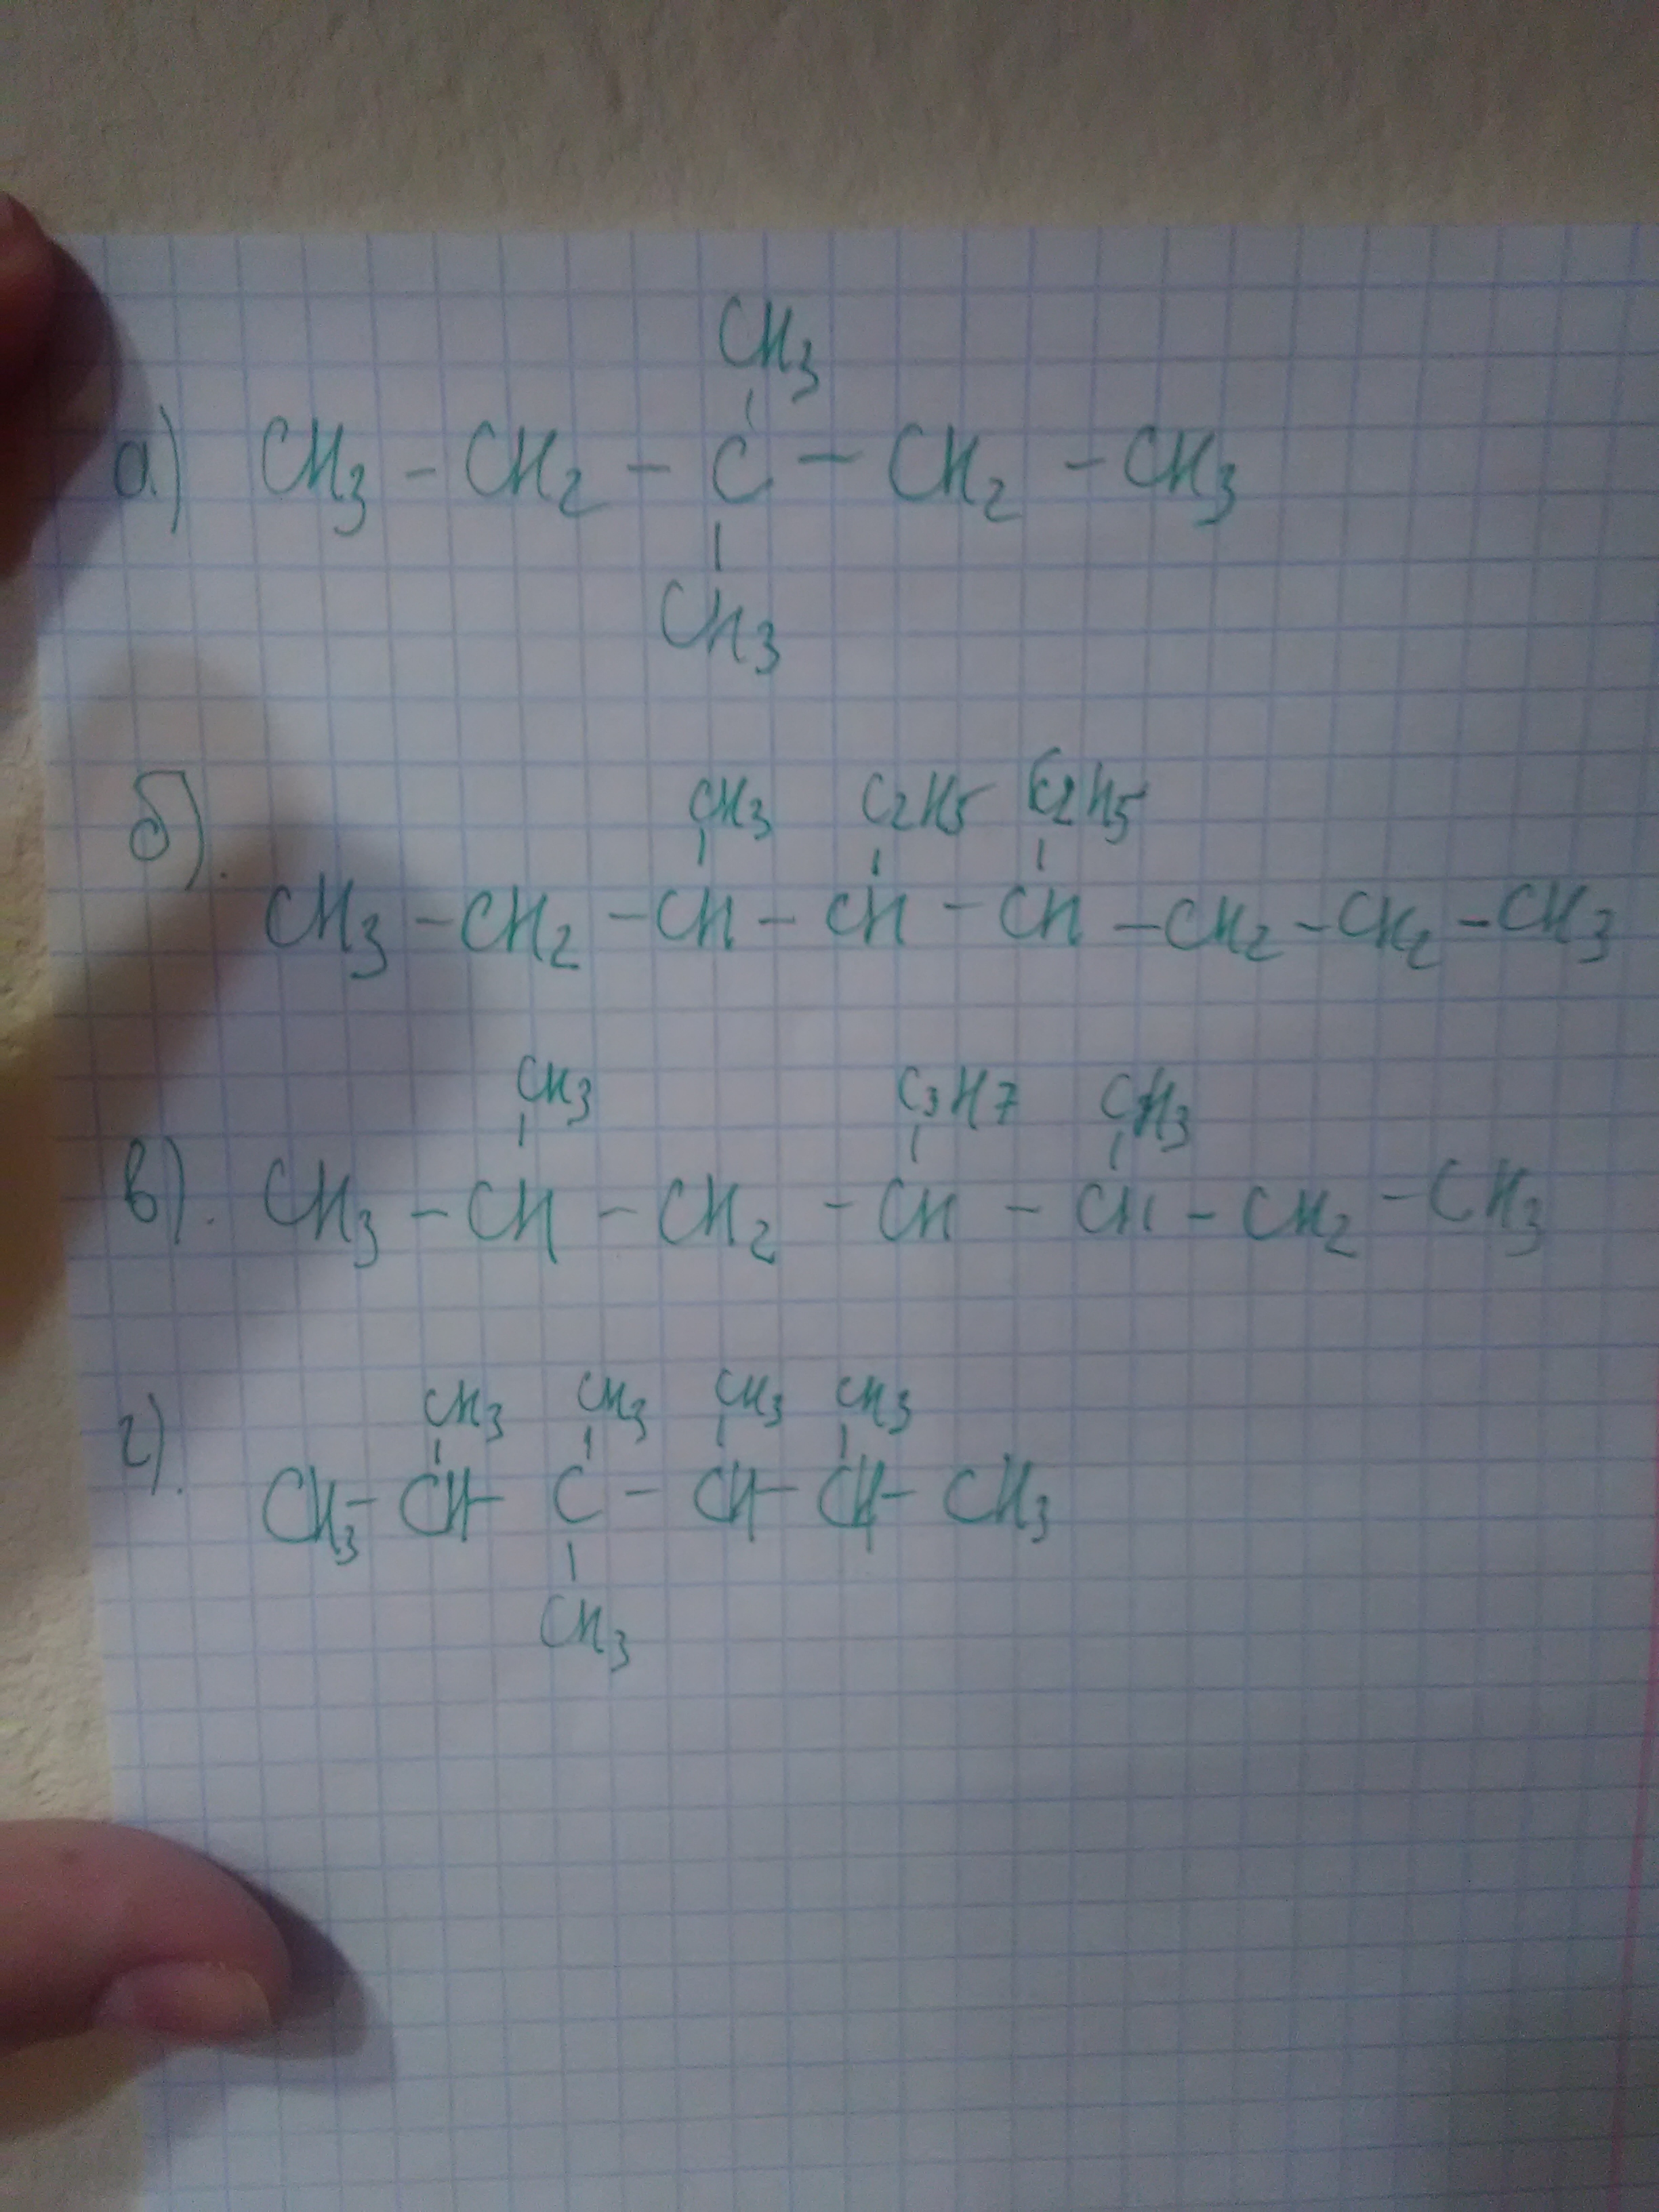 CH3
а) CH3 - CH2 - C - CH2 - CH3
CH3
CH3 C2H5 C2H5
б). CH3 - CH2 - CH - CH - CH - CH2 - CH2 - CH3
CH3 C3H7 CH3
в). CH3 - CH - CH2 - CH - CH - CH2 - CH3
CH3 CH3 CH3 CH3
г). CH3 - CH - C - CH - CH - CH3
CH3